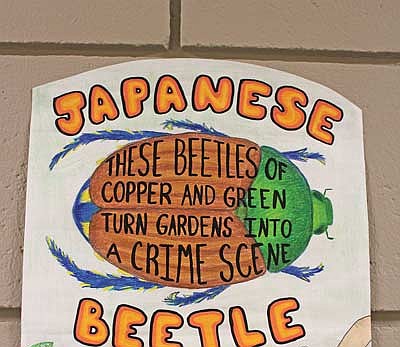 JAPANESE
THESE BEETLES OF
COPPER AND GREEN
TURN GARDENS INTO
A CRIME SCENE
BEETLE